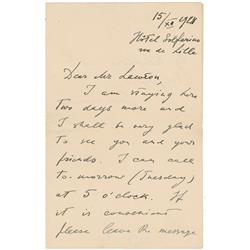 15/XII 1928
Hôtel Solférino
rue de Lille
Dear Mr Lawton,
I am staying here
two days more and
I shall be very glad
to see you and your
friends. I can call
to-morrow (Tuesday)
at 5 o'clock. If
it is convenient
please leave the message